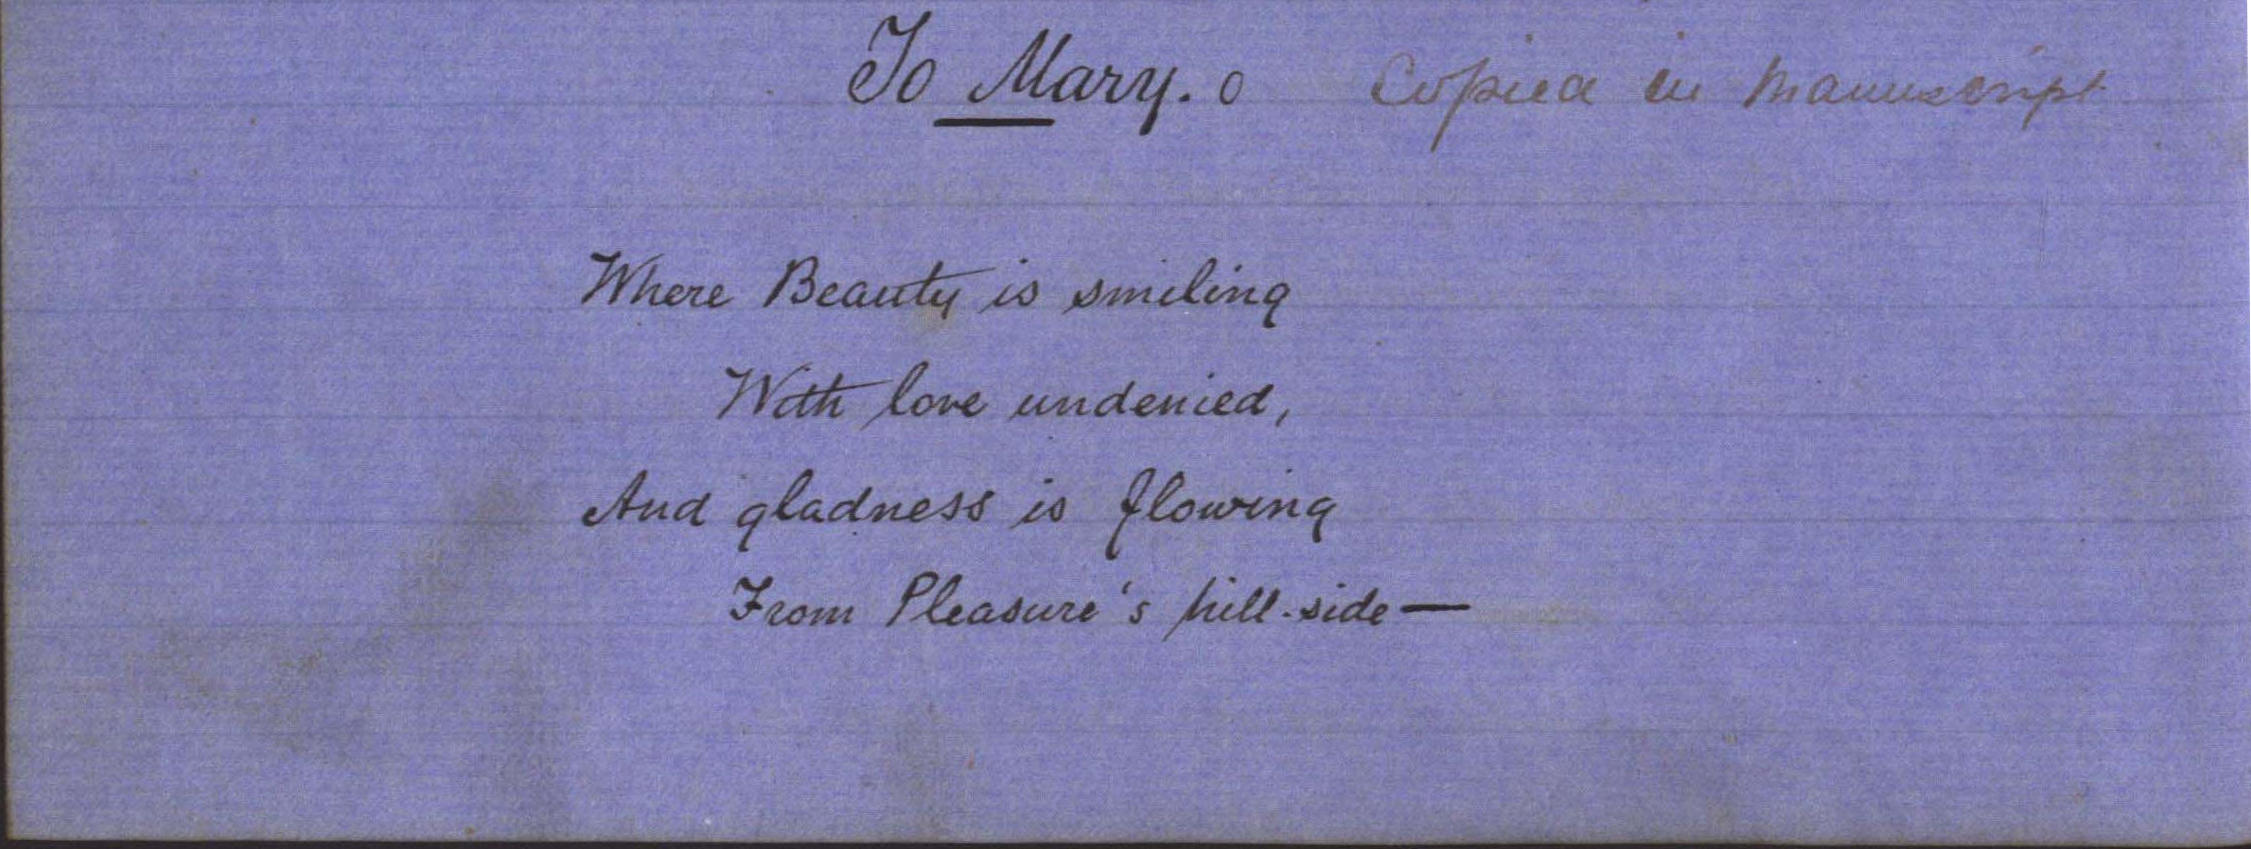 To Mary. o Copied in Manuscript
Where Beauty is smiling
With love undenied,
And gladness is flowing
From Pleasure's hill-side—